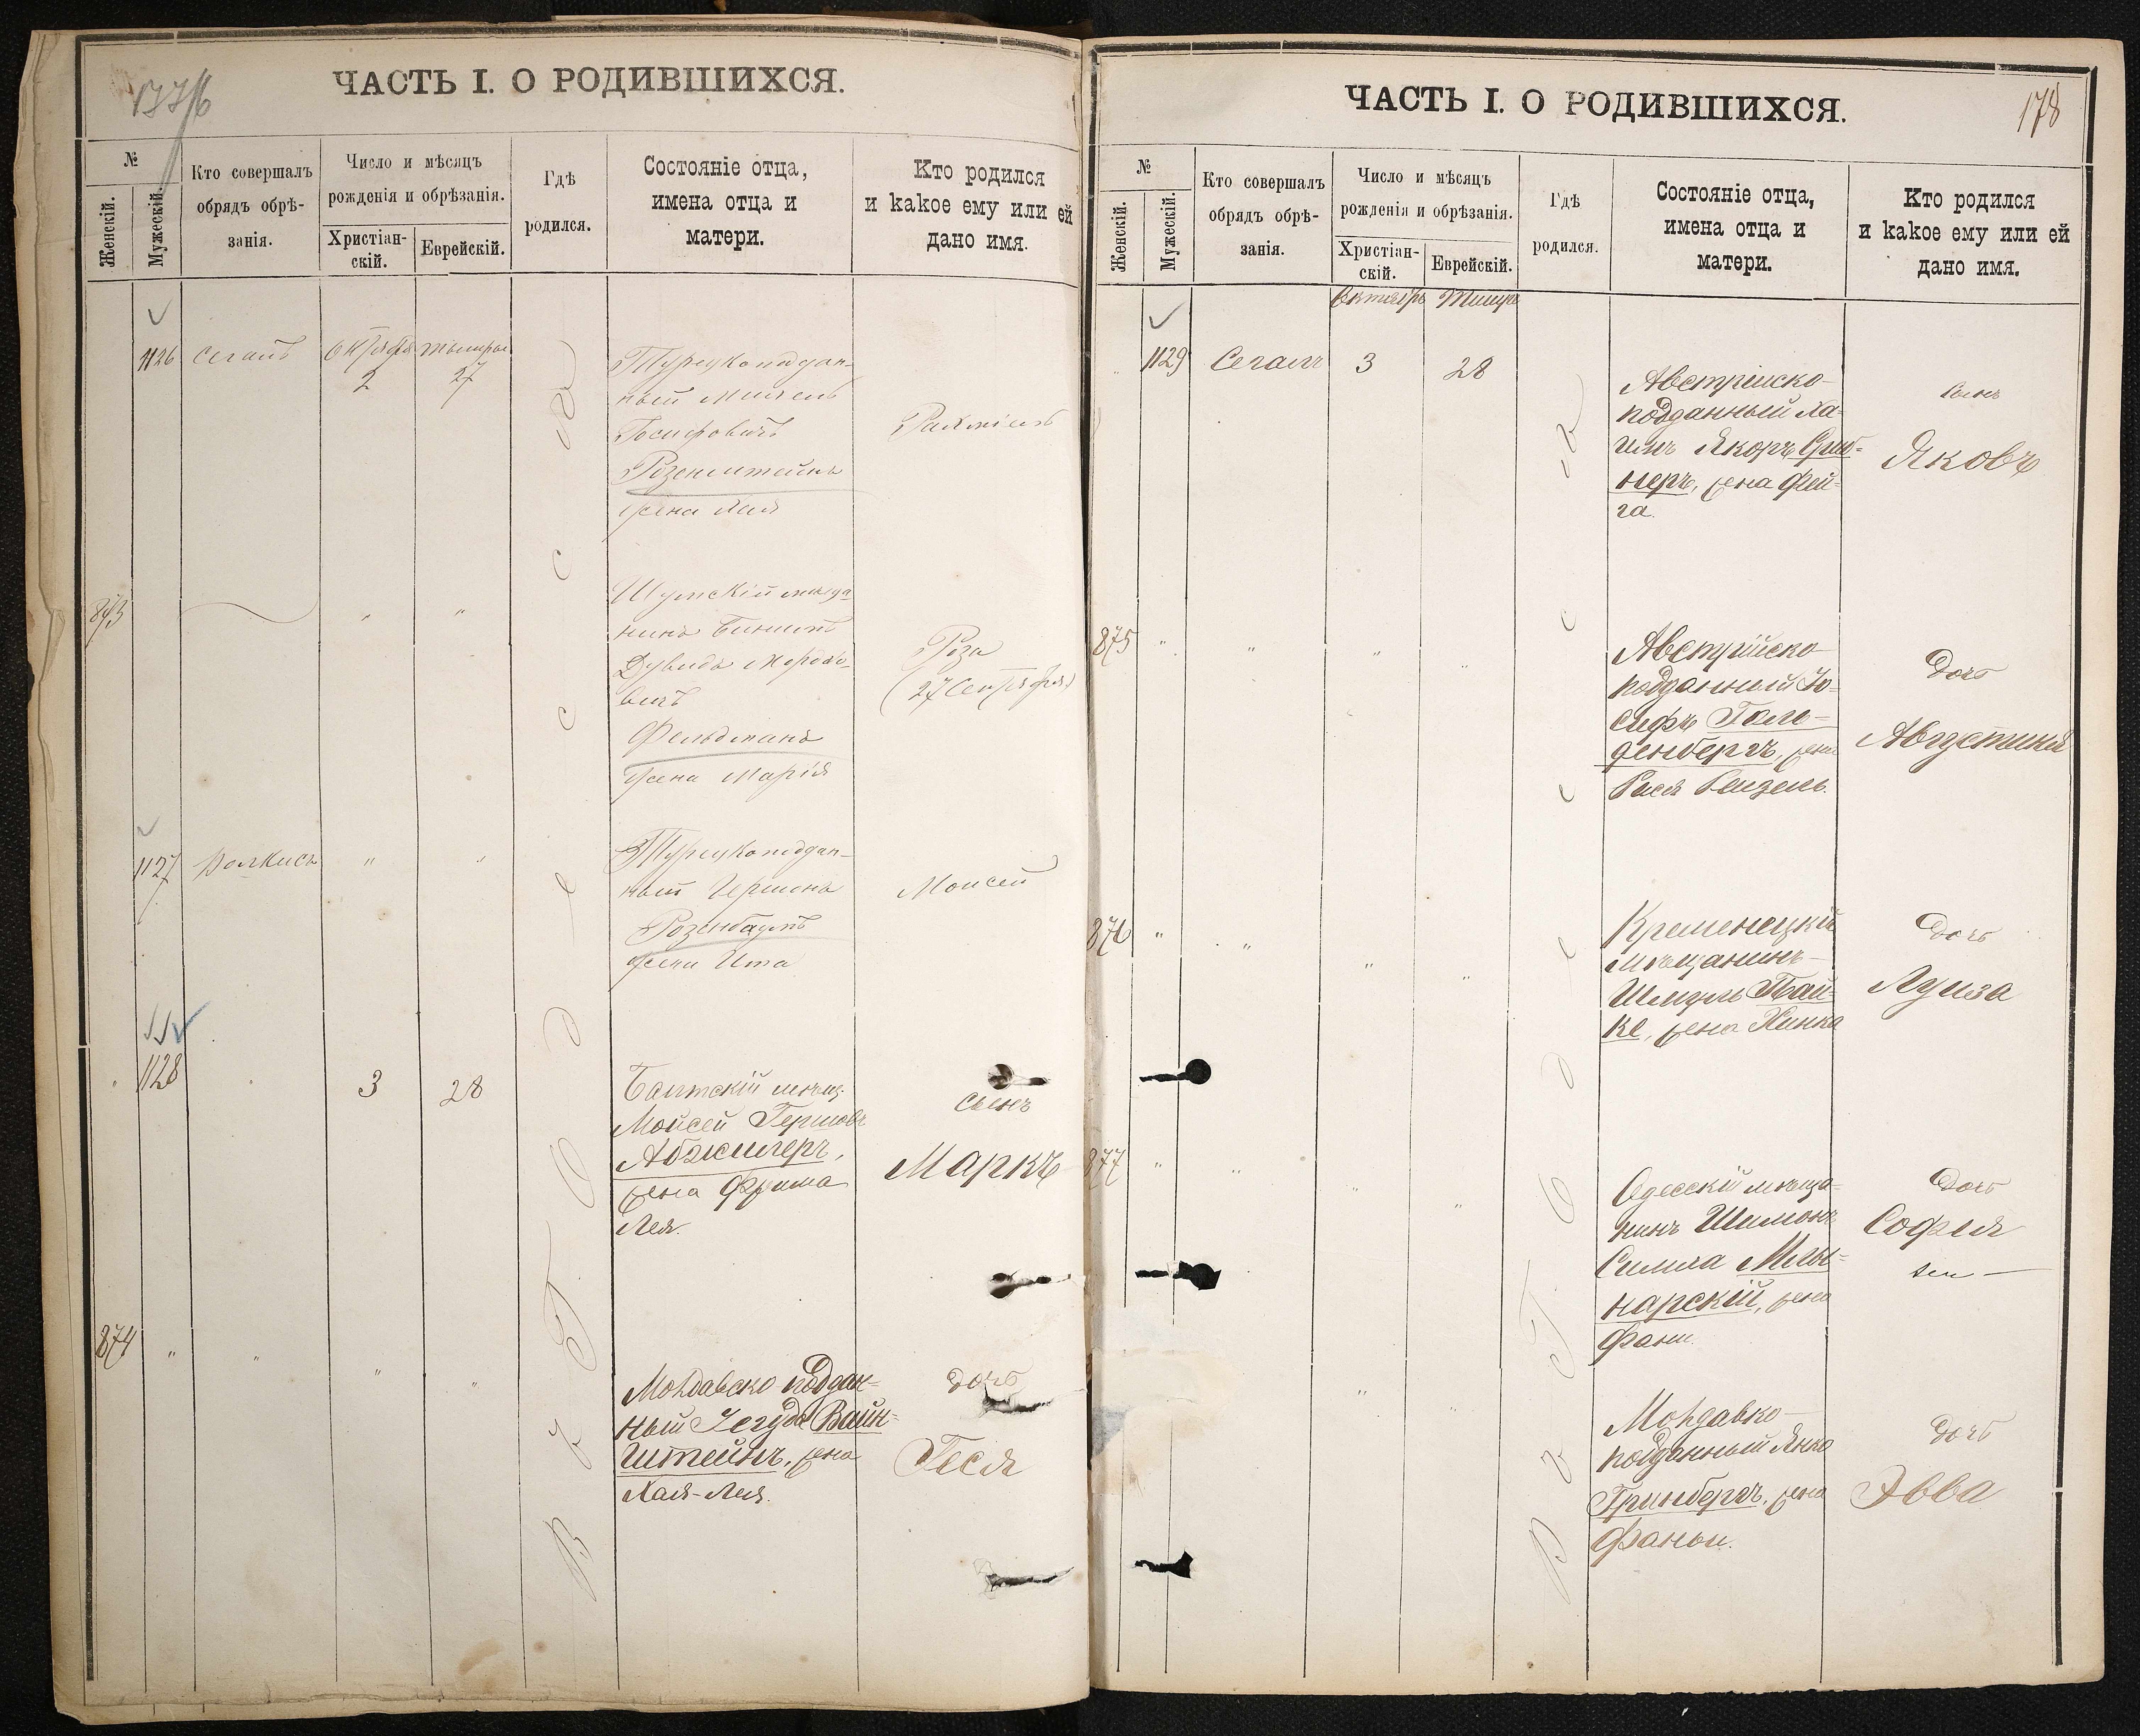 177/б
ЧАСТЬ I. О РОДИВШИХСЯ.
№
Женскій.
Мужескій.
Кто совершалъ
обрядъ обрѣ-
занія.
Число и мѣсяцъ
рожденія и обрѣзанія.
Христіан-
скій.
Еврейскій.
Гдѣ
родился.
Состояніе отца,
имена отца и
матери.
Кто родился
и какое ему или ей
дано имя.
1126
Сегаль
Октября
2
Тишри
27
Турецкоподдан-
ный
Іосифовичъ
Розенштейнъ
жена Лея
873
"
"
Шумскій мѣща
нинъ
Дувидъ Мордко-
вичъ
Фельдманъ
жена Марія
Роза
(27 Сентября)
1127
Волкисъ
"
"
Турецкоподдан-
ный Гершонъ
Розенбаумъ
жена Ита
Моисей
"
1128
"
3
28
Балтскій мѣщ.
Мойсей Гершовъ
Абжилеръ,
жена Фрима
Лея.
сынъ
Маркъ
874
"
"
"
"
Молдавско поддан-
ный Іегуда Вайн-
штейнъ, жена
Хая-Лея.
дочь
Геся
Въ г. Одессѣ
ЧАСТЬ I. О РОДИВШИХСЯ.
178
№
Женскій.
Мужескій.
Кто совершалъ
обрядъ обрѣ-
занія.
Число и мѣсяцъ
рожденія и обрѣзанія.
Христіан-
скій.
Еврейскій.
Гдѣ
родился.
Состояніе отца,
имена отца и
матери.
Кто родился
и какое ему или ей
дано имя.
Октябрь
Тишри
1129
Сегалъ
3
28
Австрійско-
подданный Ха-
имъ Якоръ
неръ, жена Фей-
га.
сынъ
Яковъ
875
"
"
"
"
Австрійско
подданный Іо-
сифъ Голь-
денбергъ, жена
Рася Рейзель.
дочь
Августина
876
"
"
"
"
Кременецкій
мѣщанинъ
Шмуль Пай-
ке, жена Хинка
дочь
Луиза
877
"
"
"
"
Одесскій мѣща-
нинъ Шимонъ
Симха Млы-
нарскій, жена
Фани.
дочь
Софія
"
"
Молдавко-
подданный Янко
Гринбергъ, жена
Фаньи.
дочь
Эвва
Въ г. Одессѣ